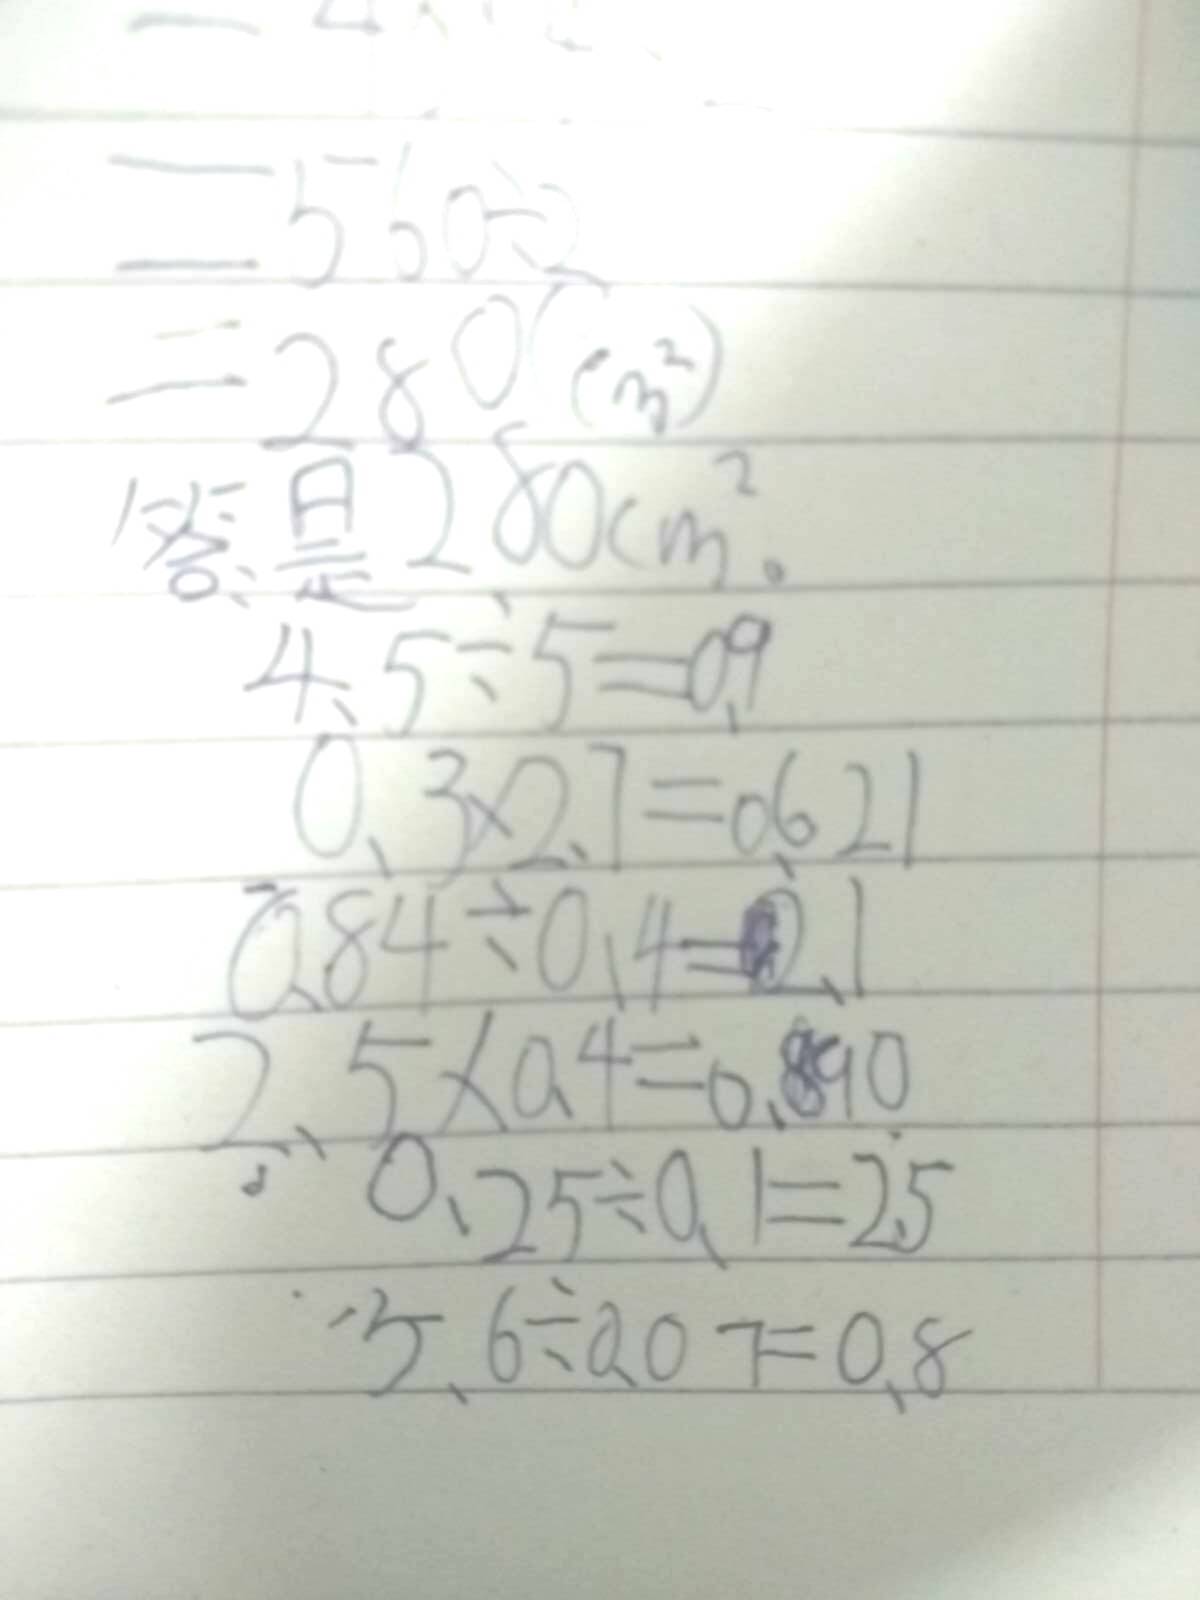 =560÷2
=280(cm²)
答:是280cm²。
4.5÷5=0.9
0.3×2.7=0.621
0.84÷0.4=2.1
2.5×0.4=0.890
0.25÷0.1=2.5
5.6÷0.07=0.8